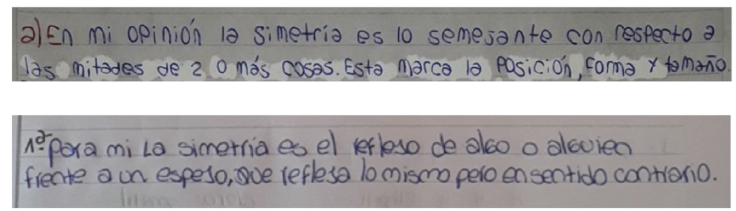 a) En mi opinión la simetría es lo semesante con respecto a
las mitades de 2 o más cosas. Esta marca la posición, forma y tamaño.
1º Para mi la simetría es el refleso de algo o alguien
frente a un espeso, que reflesa lo mismo pero en sentido contrario.